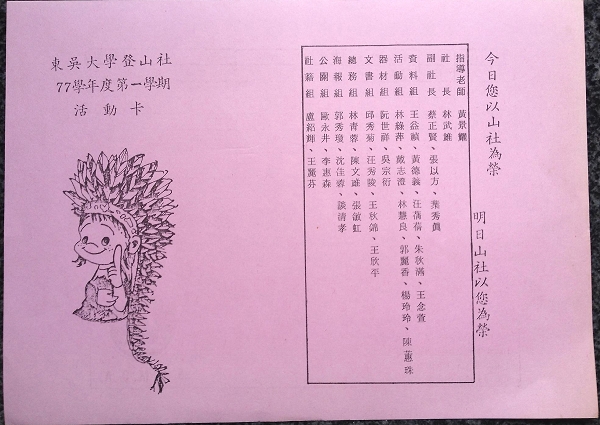 今日您以山社為榮
明日山社以您為榮
指導老師 黃景耀
社長 林武雄
副社長 蔡正賢、張以方、葉秀眞
資料組 王益禎、黃德義、汪蒨蓓、朱秋滿、王念萱
活動組 林綠萍、戴志澄、林慧良、郭麗香、楊玲玲、陳蕙珠
器材組 阮世祥、吳宗衍
文書組 邱秀菊、汪秀駿、王秋錦、王欣平
總務組 林青蓉、陳文雄、張敏虹
海報組 郭秀瓊、沈佳蓉、談清孝
公關組 歐永井、李惠森
社籍組 盧紹輝、王麗芬
東吳大學登山社
77學年度第一學期
活動卡